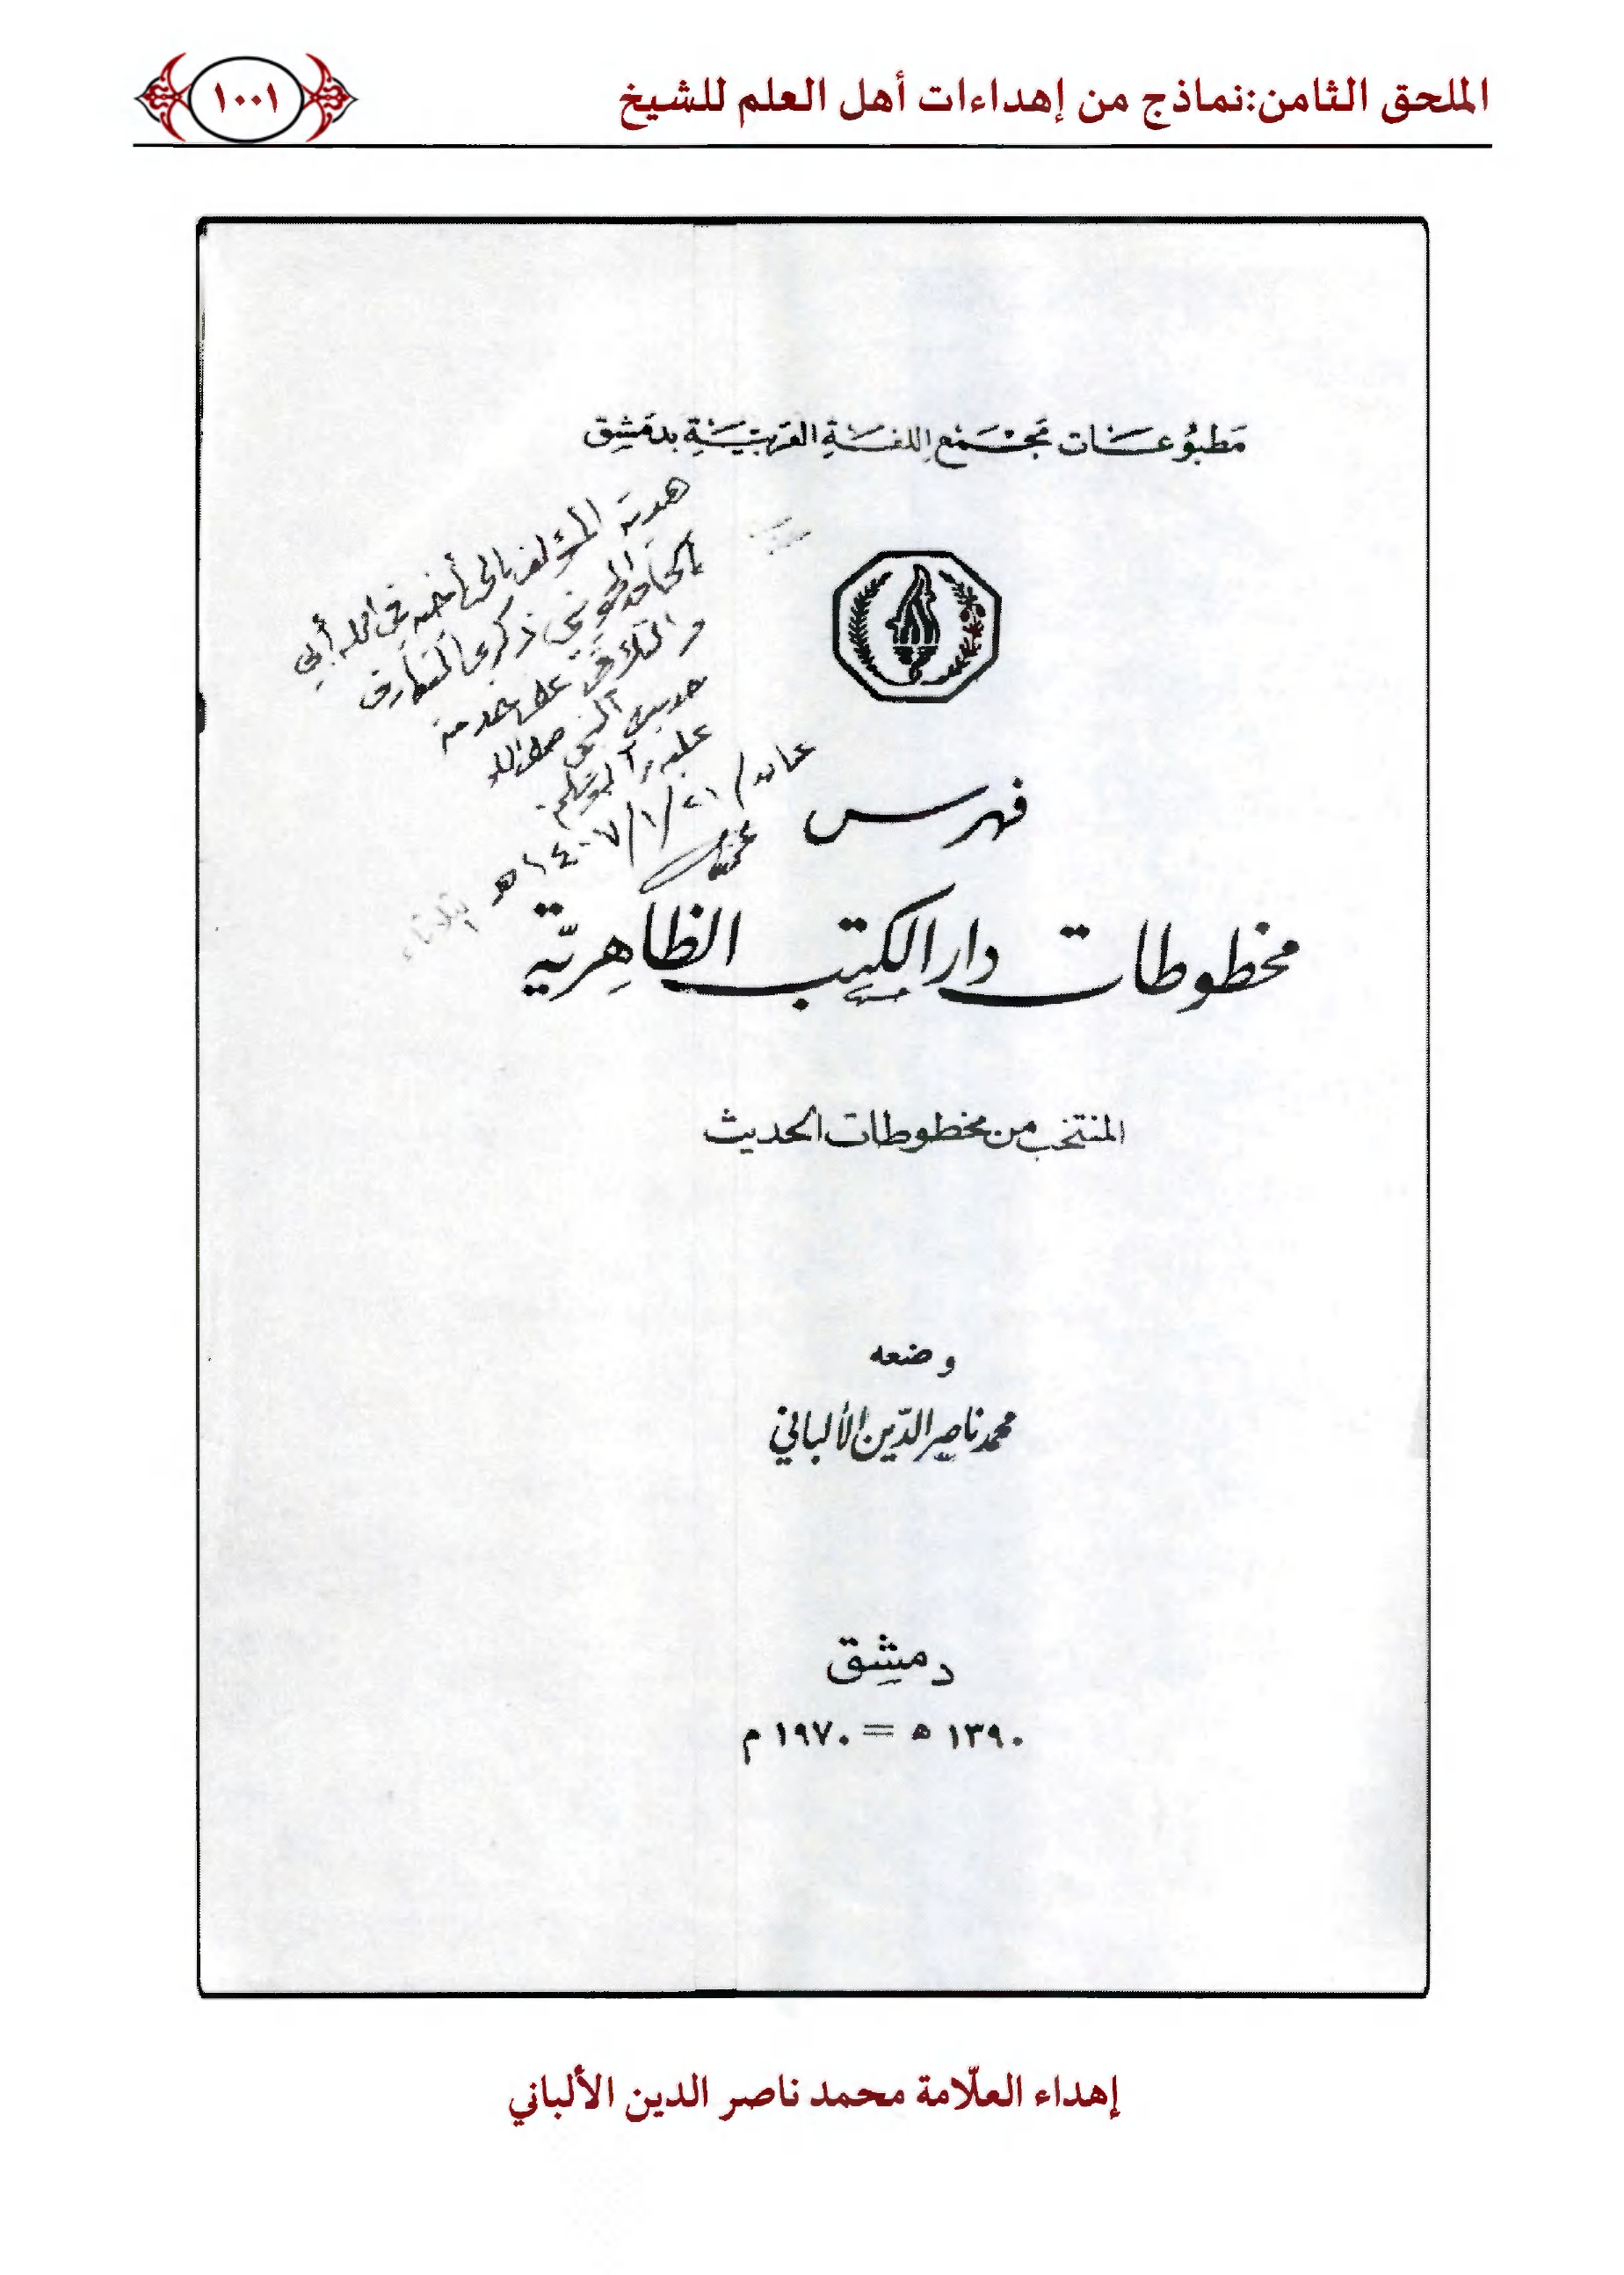 الملحق الثامن:نماذج من إهداءات أهل العلم للشيخ
١٠٠١
مَطبُوعَات مَجْمَع اللغَة العَرَبيَّة بدمَشِق
هدية المؤلف إلى أخيه في الله أبي
إسحاق الحويني ذكرى التعارف
والتلاقي على خدمة
حديث النبي صلى الله
عليه وآله وسلم.
١٤٠٧/١/٢١ هـ
فهرس
مخطوطات دار الكتب الظاهِريّة
المنتخب من مخطوطات الحديث
وضعه
محمد ناصر الدّين الألباني
دمشِق
١٣٩٠ ه = ١٩٧٠ م
إهداء العلّامة محمد ناصر الدين الألباني